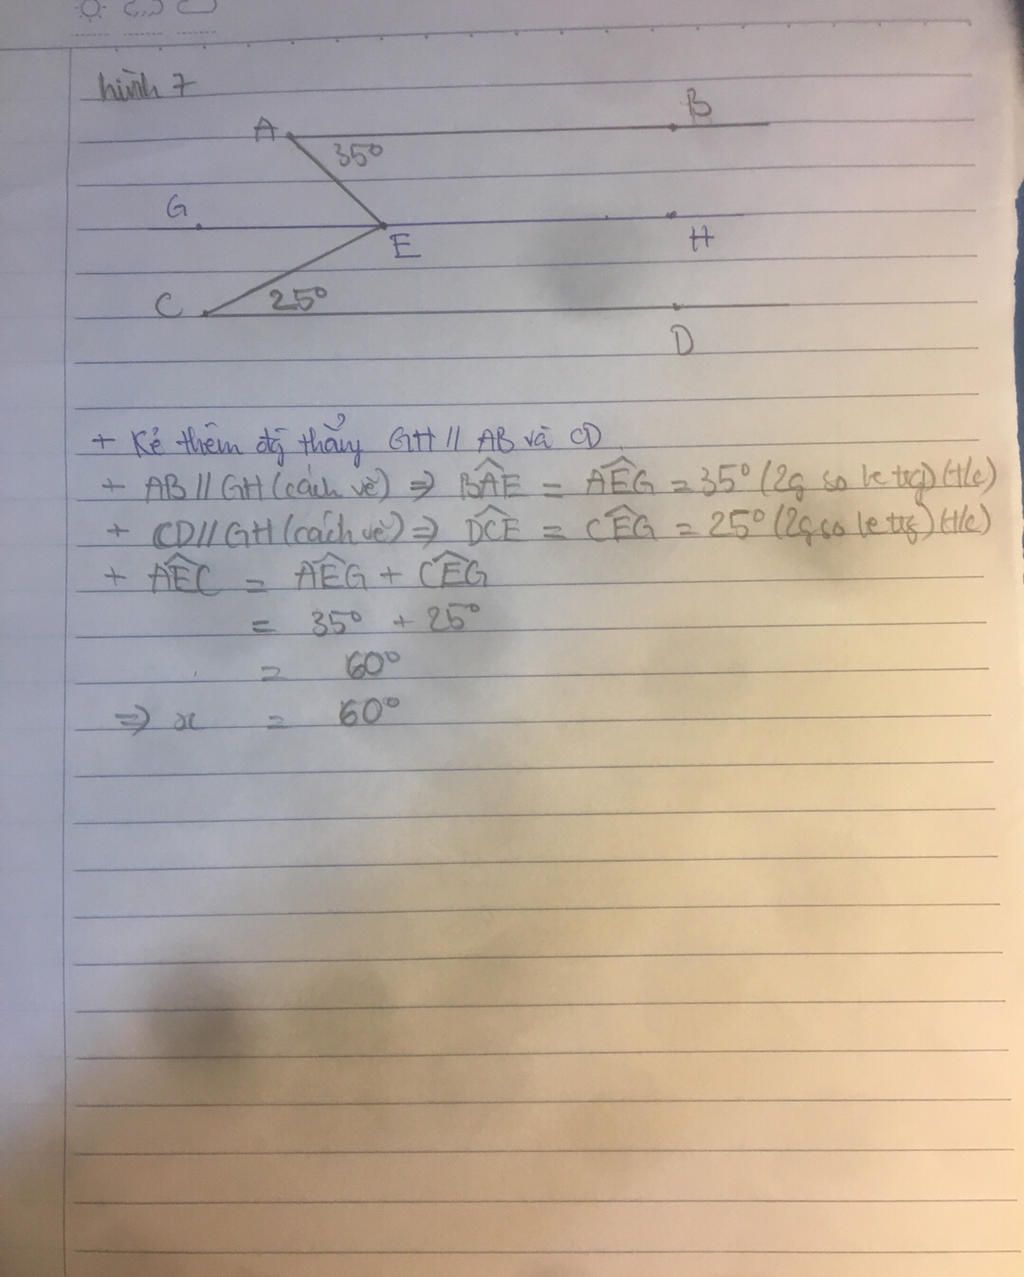 hình 7
A
B
35°
G
E
H
C
25°
D
+ Kẻ thêm đg thẳng GH // AB và CD
+ AB // GH (cách vẽ) => BÂE = AÊG = 35° (2g so le trg) (t/c)
+ CD // GH (cách vẽ) => DĈE = CÊG = 25° (2g so le trg) (t/c)
+ AÊC = AÊG + CÊG
= 35° + 25°
= 60°
=> x = 60°